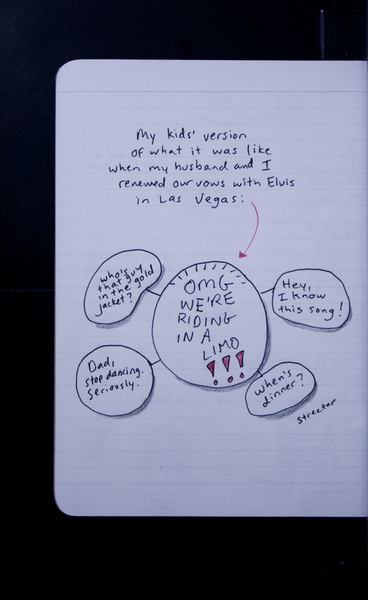 My kids' version
of what it was like
when my husband and I
renewed our vows with Elvis
in Las Vegas:
who's
that guy
in the gold
jacket?
OMG
WE'RE
RIDING
IN A
LIMO
!!!
Hey,
I know
this song!
Dad,
stop dancing.
Seriously.
When's
dinner?
Strecter